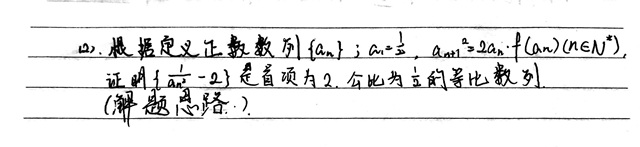 (2). 根据定义正数数列{aₙ}；a₁=1/2，aₙ₊₁²=2aₙ·f(aₙ)(n∈N*),
证明{1/aₙ²-2}是首项为2.公比为1/2的等比数列.
(解题思路.)